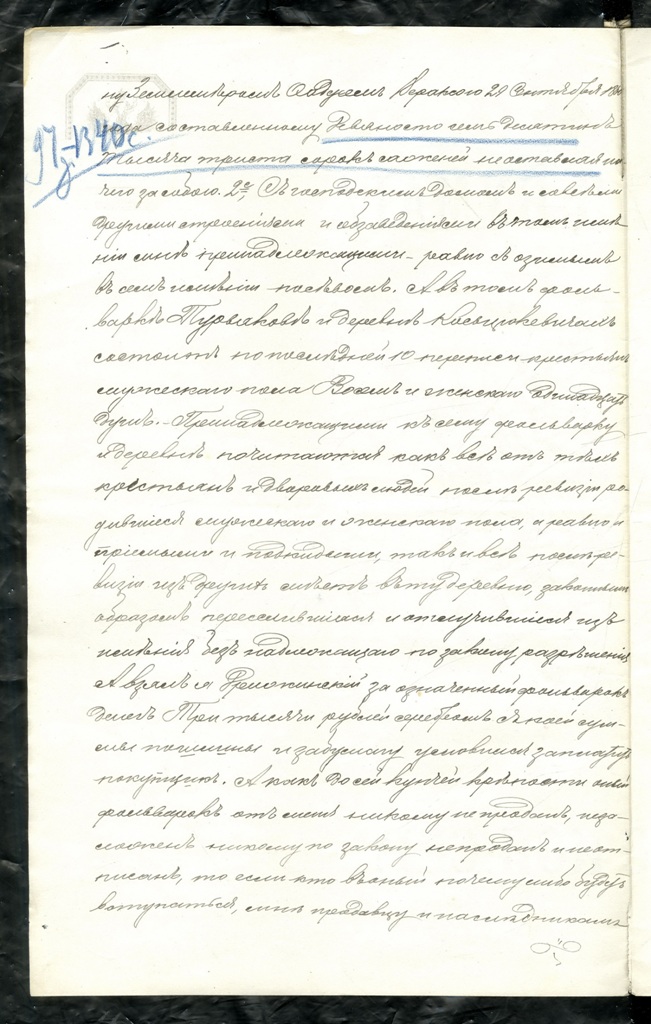 97 д. 1340 с.
ну Землемѣромъ Овдѣемъ 29 Сентября
года составленному Девяносто семь Десятинъ
тысяча триста сорокъ саженей неоставляя ни
чего за собою. 2е, Съ господскимъ Домомъ и совсѣми
другими строеніями и обзаведеніями въ томъ имѣ-
ніи мнѣ принадлежащими равно съ озимымъ
въ семъ имѣніи посѣвомъ. А въ томъ фоль-
варкѣ и деревнѣ
состоитъ по послѣдней 10 переписи крестьянъ
мужескаго пола Восемь и женскаго Одинадцать
душъ. Принадлежащими къ сему фольварку
и деревнѣ почитаются какъ всѣ отъ тѣхъ
крестьянъ и дворовыхъ людей послѣ ревизіи ро-
дившіеся мужескаго и женскаго пола, и равно и
пріемыши и подкидыши, такъ и всѣ послѣ ре-
визіи изъ другихъ мѣстъ въ ту деревню, законнымъ
образомъ переселившіеся и отлучившіеся изъ
имѣнія безъ надлежащаго по закону разрѣшенія
А взялъ я за означенный фольварокъ
денегъ Три тысячи рублей серебромъ съ коей сум-
мы пошлины и за бумагу условился заплатить
покупщикъ. А какъ до сей купчей крѣпости оный
фольварокъ отъ меня никому не проданъ, неза-
ложенъ никому по закону непроданъ и неот-
писанъ, то если кто въ оный почему либо будутъ
вступаться, мнѣ продавцу и наслѣдникамъ